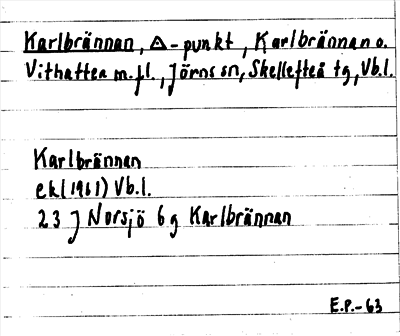 Karlbrännan, △-punkt, Karlbrännan o.
Vithatten m.fl., Jörns sn, Skellefteå tg, Vb.l.
Karlbrännan
ek (1961) Vb.l.
23 J Norsjö 6 g Karlbrännan
E.P.-63